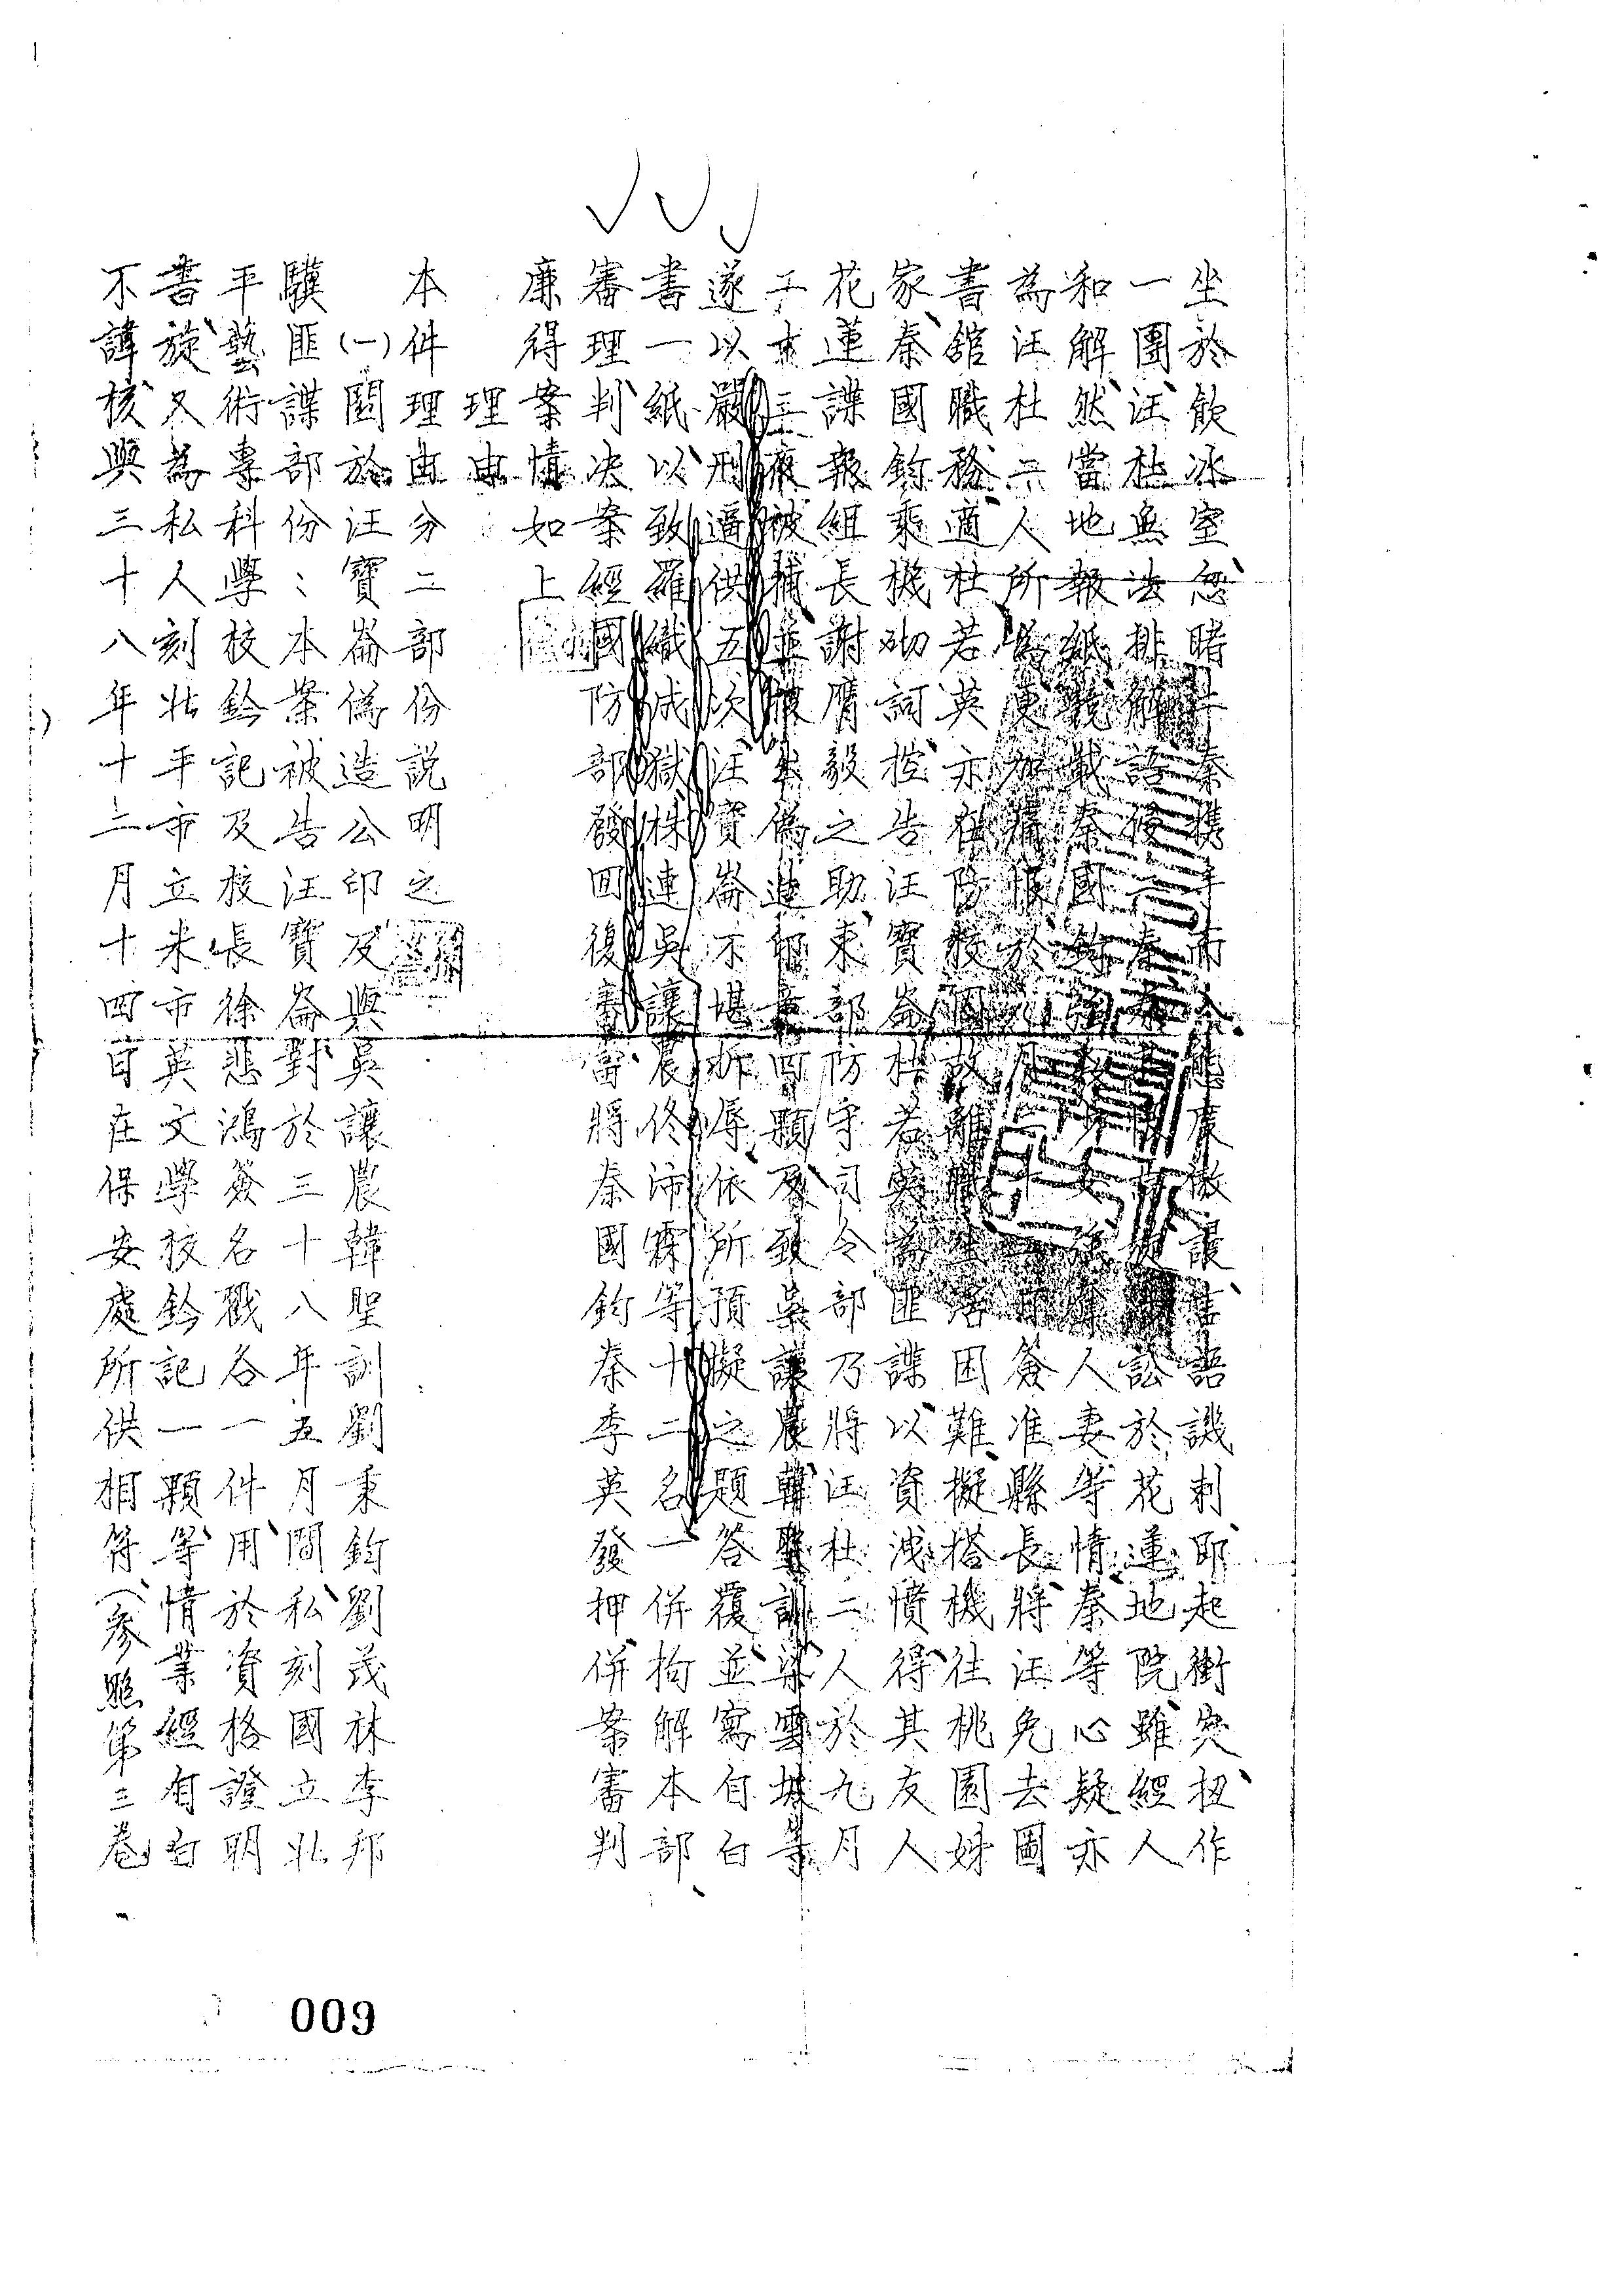 坐於飲冰室、忽睹井秦携手而入、態度傲謾、言語譏刺、即起衝突、扭作
一團、汪杜無法排解、語侵二秦、訟於花蓮地院、雖經人
和解、然當地報紙競載秦國鈞人妻等情、秦等心疑亦
為汪杜二人所為、更加痛恨、於八月簽准縣長將汪免去圖
書館職務、適杜若英亦在防校因故離職、生活困難、擬搭機往桃園姊
家、秦國鈞乘機砌詞控告汪寶崙杜若英為匪諜、以資洩憤、得其友人
花蓮諜報組長謝膺毅之助、東部防守司令部乃將汪杜二人於九月
夜被捕並被偽造印章四顆及致吳讓農韓聖訓梁雲坡等
遂以嚴刑逼供五次、汪寶崙不堪折辱、依所預擬之題答覆並寫自白
書一紙、以致羅織成獄、株連吳讓農佟沛霖等十二名、一併拘解本部、
審理判决案經國防部發回復審、當將秦國鈞秦季英發押併案審判
廉得案情如上
理由
本件理由分二部份説明之
(一)關於汪寶崙偽造公印及與吳讓農韓聖訓劉秉鈞劉茂林李邦
驥匪諜部份：本案被告汪寶崙對於三十八年五月間私刻國立北
平藝術專科學校鈐記及校長徐悲鴻簽名戳各一件、用於資格證明
書、旋又為私人刻北平市立米市英文學校鈐記一顆等情業經自白
不諱、核與三十八年十二月十四日在保安處所供相符（參照第三卷
009